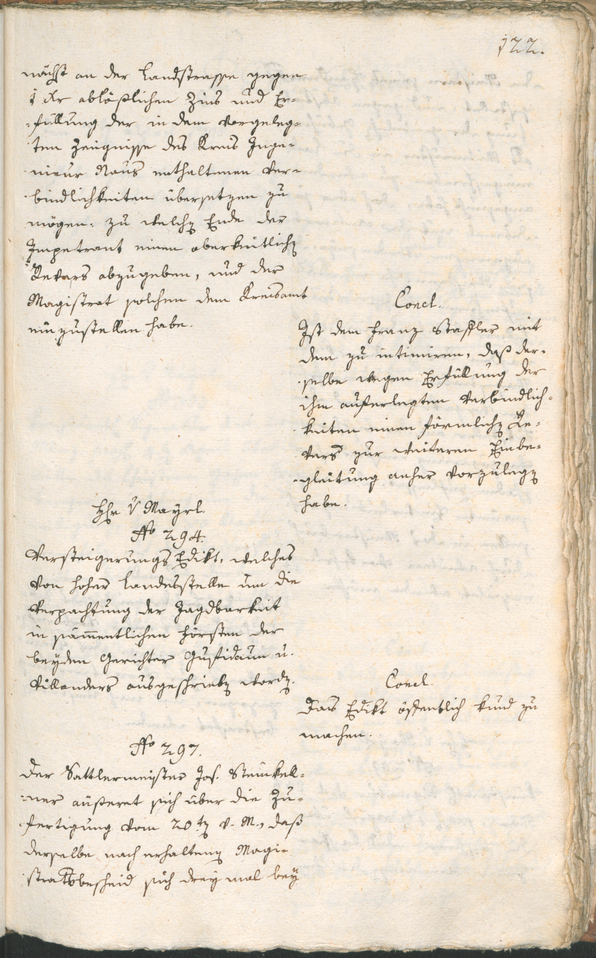 122.
nächst an der Landstrasse gegen
1 Xr ablößlichen Zins und Er-
füllung der in dem vorgeleg-
ten Zeugnisse des Kreis Inge-
nieur Naus enthaltenen Ver-
bindlichkeiten übersetzen zu
mögen: zu welch Ende der
Impetrant einen oberkeitlich
Revers abzugeben, und der
Magistrat solchen dem Kreisamt
einzustellen habe.
Concl.
Ist dem Franz Staffler mit
dem zu intimiren, daß der-
selbe wegen Erfüllung der
ihm auferlegten Verbindlich-
keiten einen förmlich Re-
vers zur weiteren Einbe-
gleitung anher vorzulegen
habe.
Hr. v Mayrl
No 294.
Versteigerungs Edikt, welches
von hoher Landesstelle um die
Verpachtung der Jagdbarkeit
in sämmentlichen Forsten der
beyden Gerichter Gufidaun u.
Villanders ausgeschrieben word.
Concl.
Das Edikt öffentlich kund zu
machen.
No 297.
Der Sattlermeister Jos. Steinkel-
ner äußeret sich über die Zu-
fertigung vom 20ten v. M., daß
derselbe nach erhaltenen Magi-
stratsbescheid sich drey mal bey